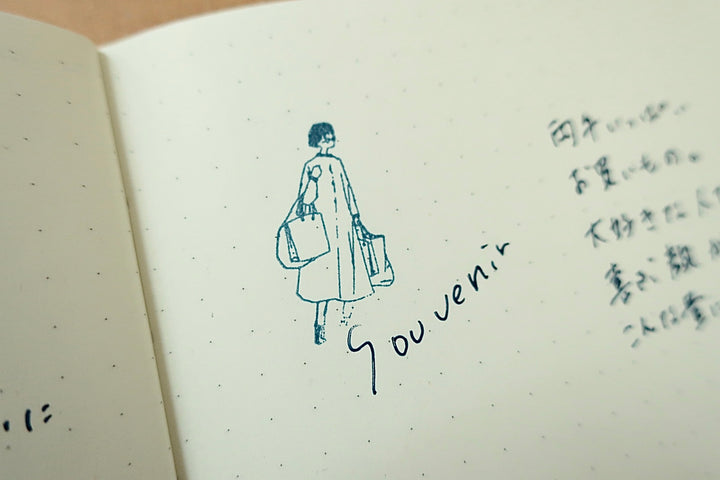 に
Souvenir
両手いっぱい
お買いもの。
大好きな人
喜ぶ顔
こんな